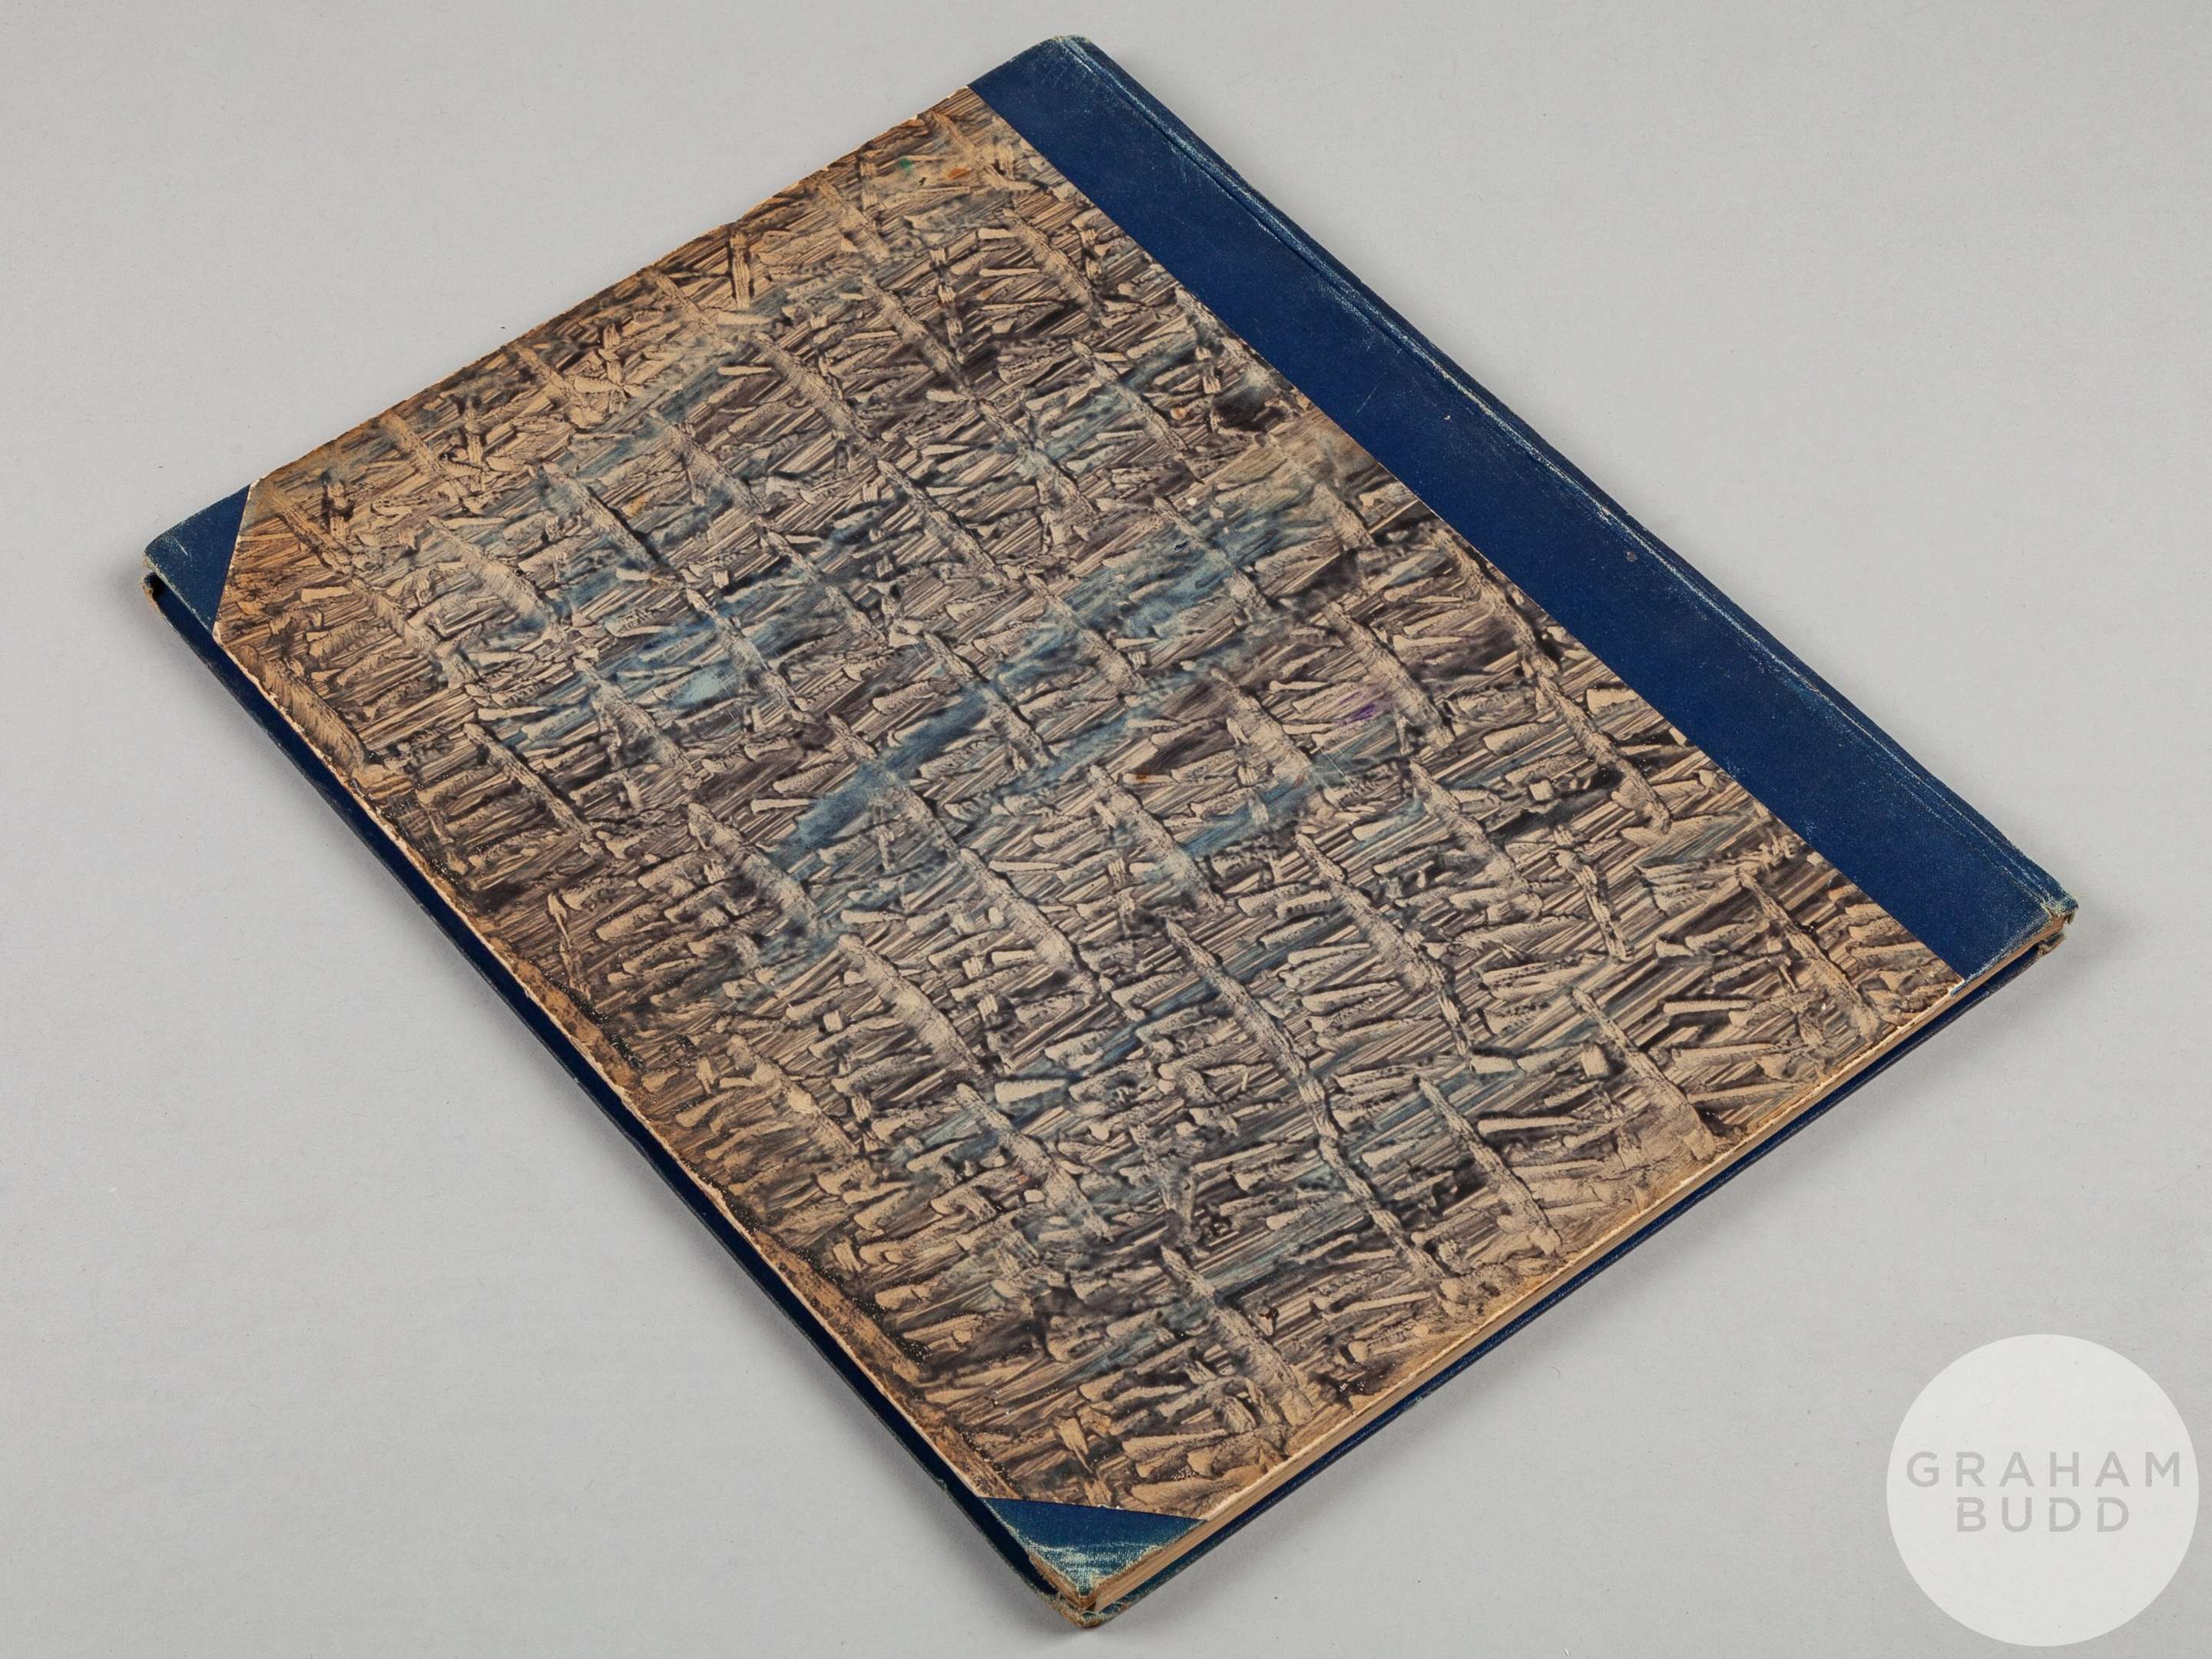 GRAHAM
BUDD